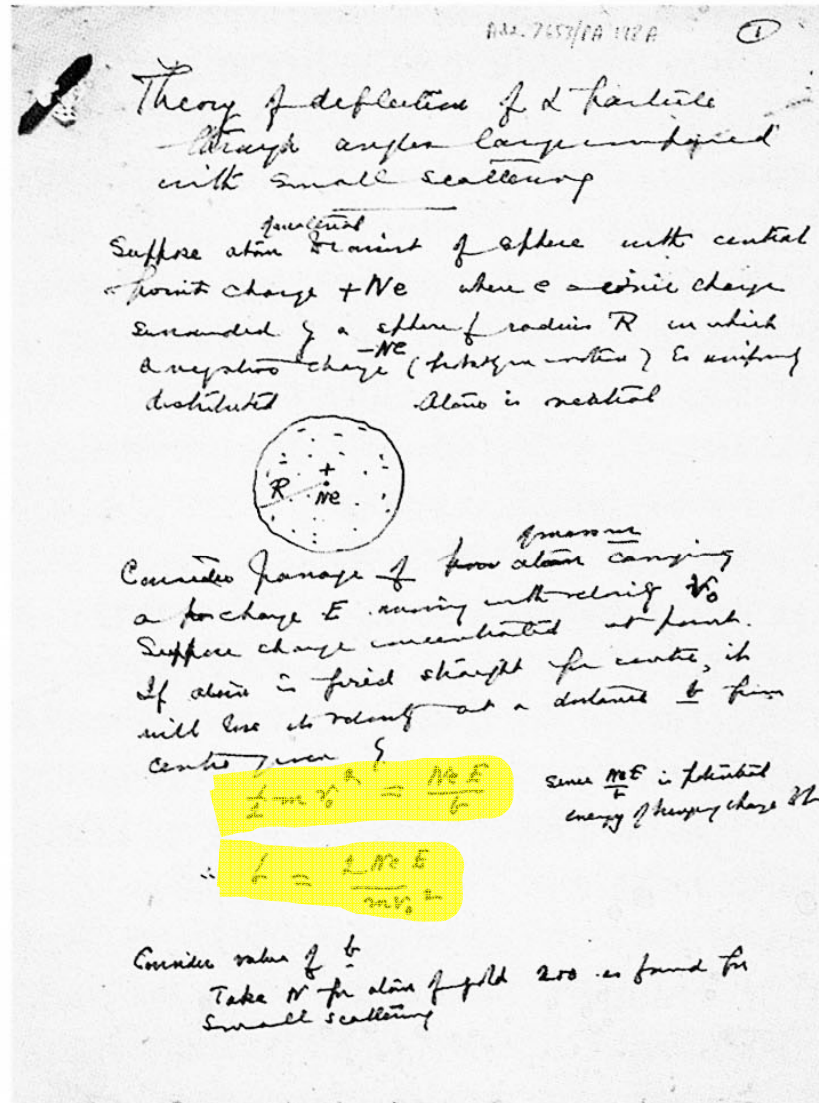 Add. 7653/PA 118 A
①
Theory of deflection of α particle
through angles large compared
with small scattering
Suppose atom consist of sphere with central
point charge +Ne where e = ionic charge
surrounded by a sphere of radius R in which
a negative charge -Ne is uniformly
distributed Atom is neutral
+
R Ne
of mass m
Consider passage of atom carrying
a charge E moving with velocity v₀
Suppose charge concentrated at point.
If atom is fired straight for centre, it
will lose its velocity at a distance b from
centre given by
½ m v₀² = NeE/b
since NeE/b is potential
energy of charge
∴ b = 2NeE/mv₀²
Consider value of b
Take N for atom of gold 200 as found for
small scattering